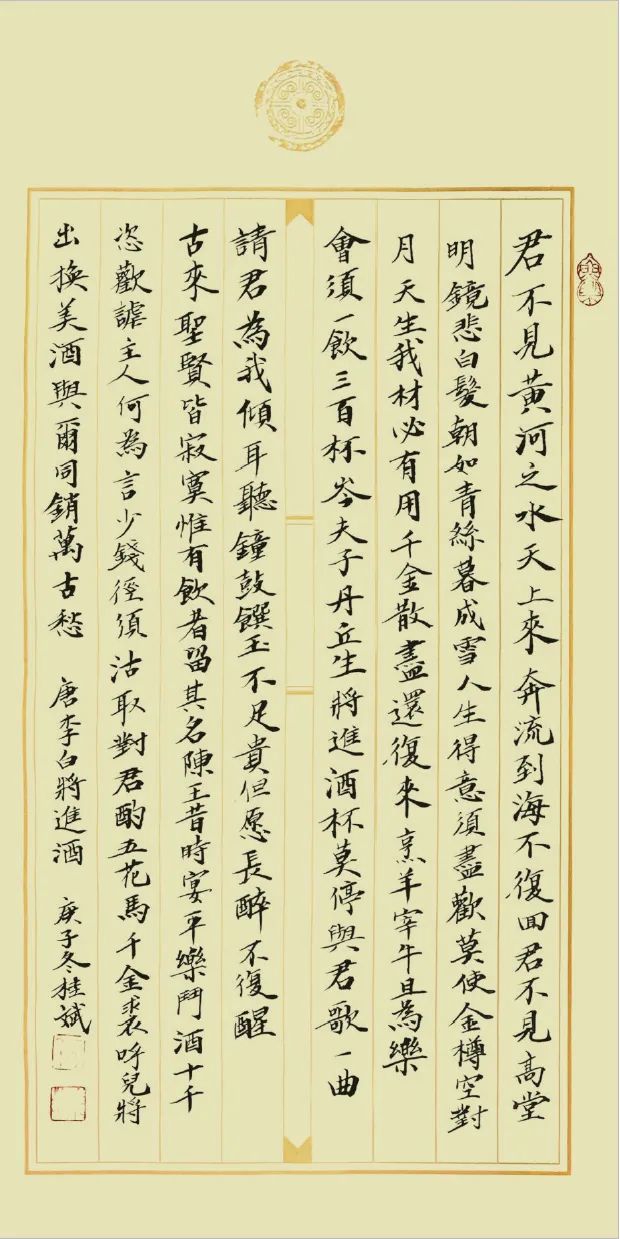 君不見黃河之水天上來奔流到海不復回君不見高堂
明鏡悲白髮朝如青絲暮成雪人生得意須盡歡莫使金樽空對
月天生我材必有用千金散盡還復來烹羊宰牛且為樂
會須一飲三百杯岑夫子丹丘生將進酒杯莫停與君歌一曲
請君為我傾耳聽鐘鼓饌玉不足貴但愿長醉不復醒
古來聖賢皆寂寞惟有飲者留其名陳王昔時宴平樂鬥酒十千
恣歡謔主人何為言少錢徑須沽取對君酌五花馬千金裘呼兒將
出換美酒與爾同銷萬古愁 唐李白將進酒 庚子冬桂斌